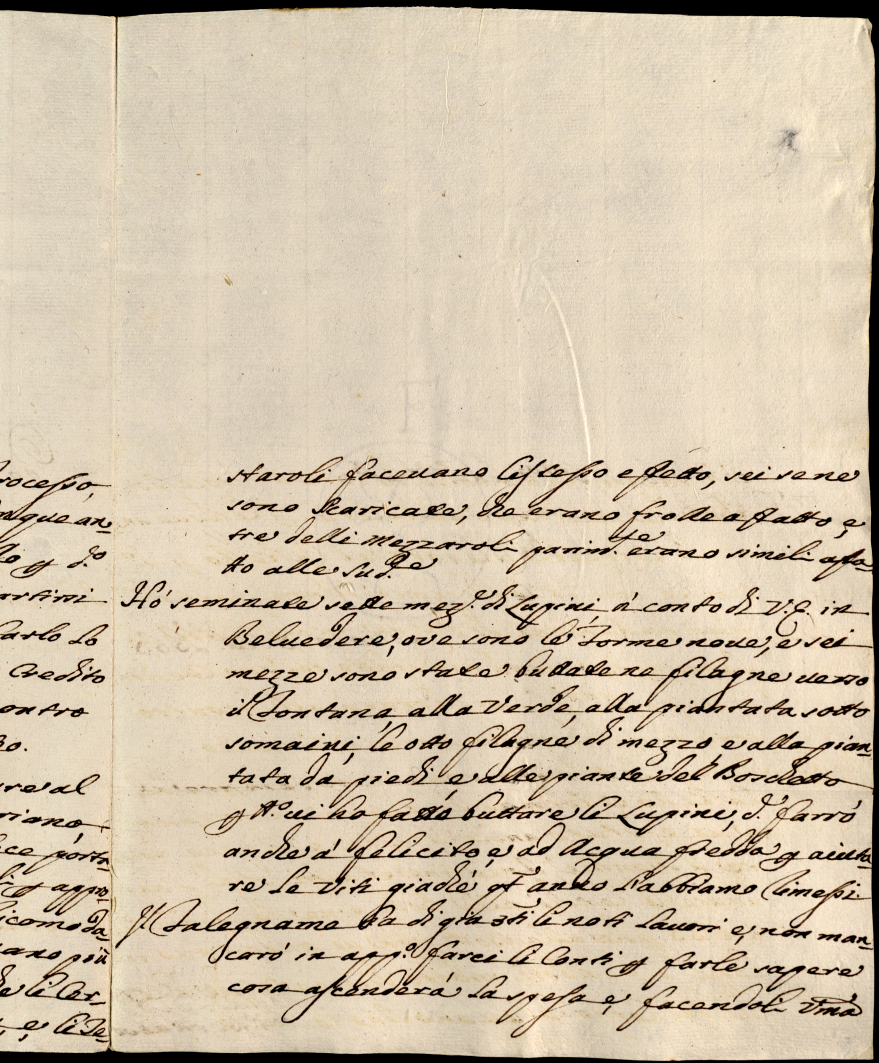 rocesso,
unque an-
llo p d.º
artini
Carlo lo
Credito
ontro
so.
are al
riano,
ce porta-
li p appro-
licomoda-
ano più
he li Cer-
e, li Te-
staroli faceuano l'istesso effetto, sei sene
sono scaricate, che erano frolle affatto e,
tre delli mezzaroli parim.te erano simili affa-
tto alle sud.e
Hò seminate sette mez.e di Lupini à conto di V.E. in
Beluedere, ove sono le Forme noue, e sei
mezze sono state buttate ne filagne uerso
il Fontana, alla Verde, alla piantata sotto
somaini, le otto filagne di mezzo e alla pian-
tata dà piedi e alle piante del Boschetto
p tt.º ui ho fatto buttare li Lupini, d.º farrò
anche à felicito, e, ad Acqua fredda p aiuta-
re le Viti giache qt anno l'abbiamo rimessi.
Il Falegname fà di gia sti li noti Lauori e, non man-
carò in app.º farci li Conti p farle sapere
cosa ascenderà la spesa e, facendoli Vma